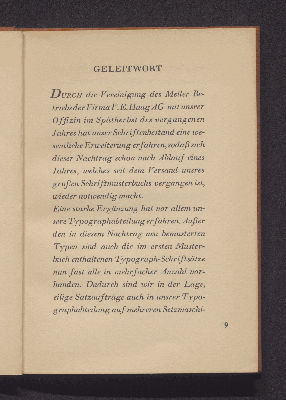 GELEITWORT
DURCH die Vereinigung des Meller Be-
triebs der Firma F. E. Haag AG mit unsrer
Offizin im Spätherbst des vergangenen
Jahres hat unser Schriftenbestand eine we-
sentliche Erweiterung erfahren, sodaß sich
dieser Nachtrag schon nach Ablauf eines
Jahres, welches seit dem Versand unsres
großen Schriftmusterbuchs vergangen ist,
wieder notwendig macht.
Eine starke Ergänzung hat vor allem un-
sere Typographabteilung erfahren. Außer
den in diesem Nachtrag neu bemusterten
Typen sind auch die im ersten Muster-
buch enthaltenen Typograph-Schriftsätze
nun fast alle in mehrfacher Anzahl vor-
handen. Dadurch sind wir in der Lage,
eilige Satzaufträge auch in unsrer Typo-
graphabteilung auf mehreren Setzmaschi-
9